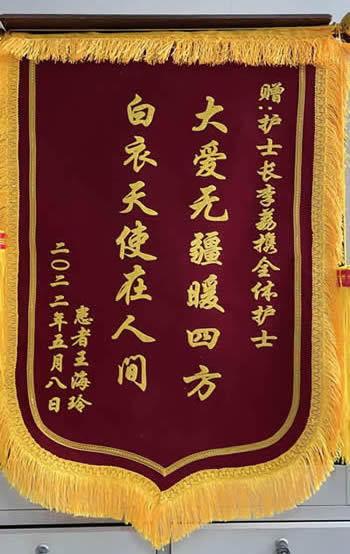 赠:护士长李荔携全体护士
大爱无疆暖四方
白衣天使在人间
患者王海玲
二〇二二年五月八日